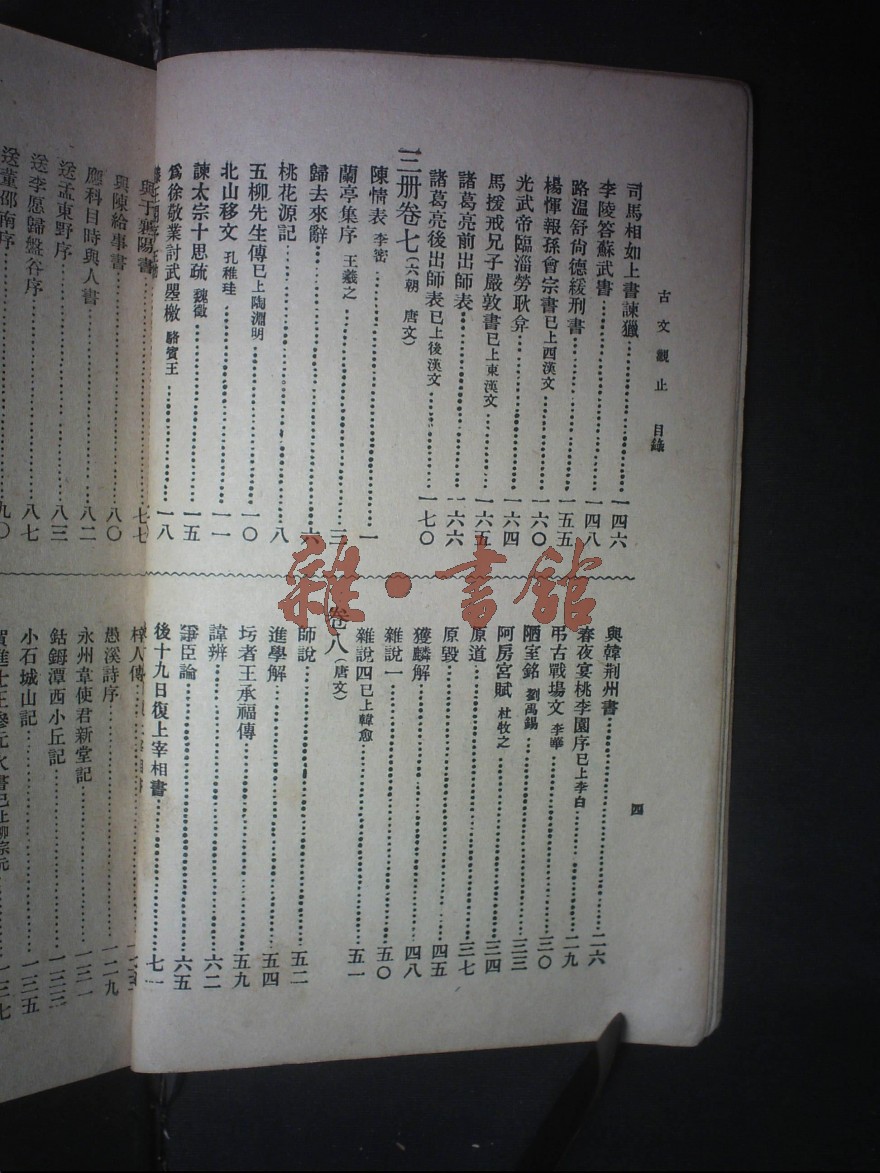 古文觀止　目錄
四
司馬相如上書諫獵……一四六
李陵答蘇武書……一四八
路溫舒尙德緩刑書……一五五
楊惲報孫會宗書已上西漢文……一六〇
光武帝臨淄勞耿弇……一六四
馬援戒兄子嚴敦書已上東漢文……一六五
諸葛亮前出師表……一六六
諸葛亮後出師表已上後漢文……一七〇
三册卷七(六朝　唐文)
陳情表 李密……一
蘭亭集序 王羲之……三
歸去來辭……六
桃花源記……八
五柳先生傳已上陶淵明……一〇
北山移文 孔稚珪……一一
諫太宗十思疏 魏徵……一五
爲徐敬業討武曌檄 駱賓王……一八
與韓荆州書……二六
春夜宴桃李園序已上李白……二九
弔古戰場文 李華……三〇
陋室銘 劉禹錫……三三
阿房宮賦 杜牧之……三四
原道……三七
原毀……四五
獲麟解……四八
雜說一……五〇
雜說四已上韓愈……五一
卷八(唐文)
師說……五二
進學解……五四
圬者王承福傳……五九
諱辨……六二
爭臣論……六五
後十九日復上宰相書……七一
與于襄陽書……七七
與陳給事書……八〇
應科目時與人書……八二
送孟東野序……八三
送李愿歸盤谷序……八七
送董邵南序……九〇
梓人傳
愚溪詩序……一二九
永州韋使君新堂記……一三一
鈷鉧潭西小丘記……一三三
小石城山記……一三五
賀進士王參元火書已上柳宗元……一三七
雜·書館